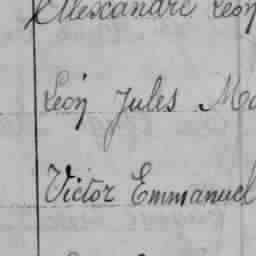 Alexandre Léon
Léon Jules
Victor Emmanuel